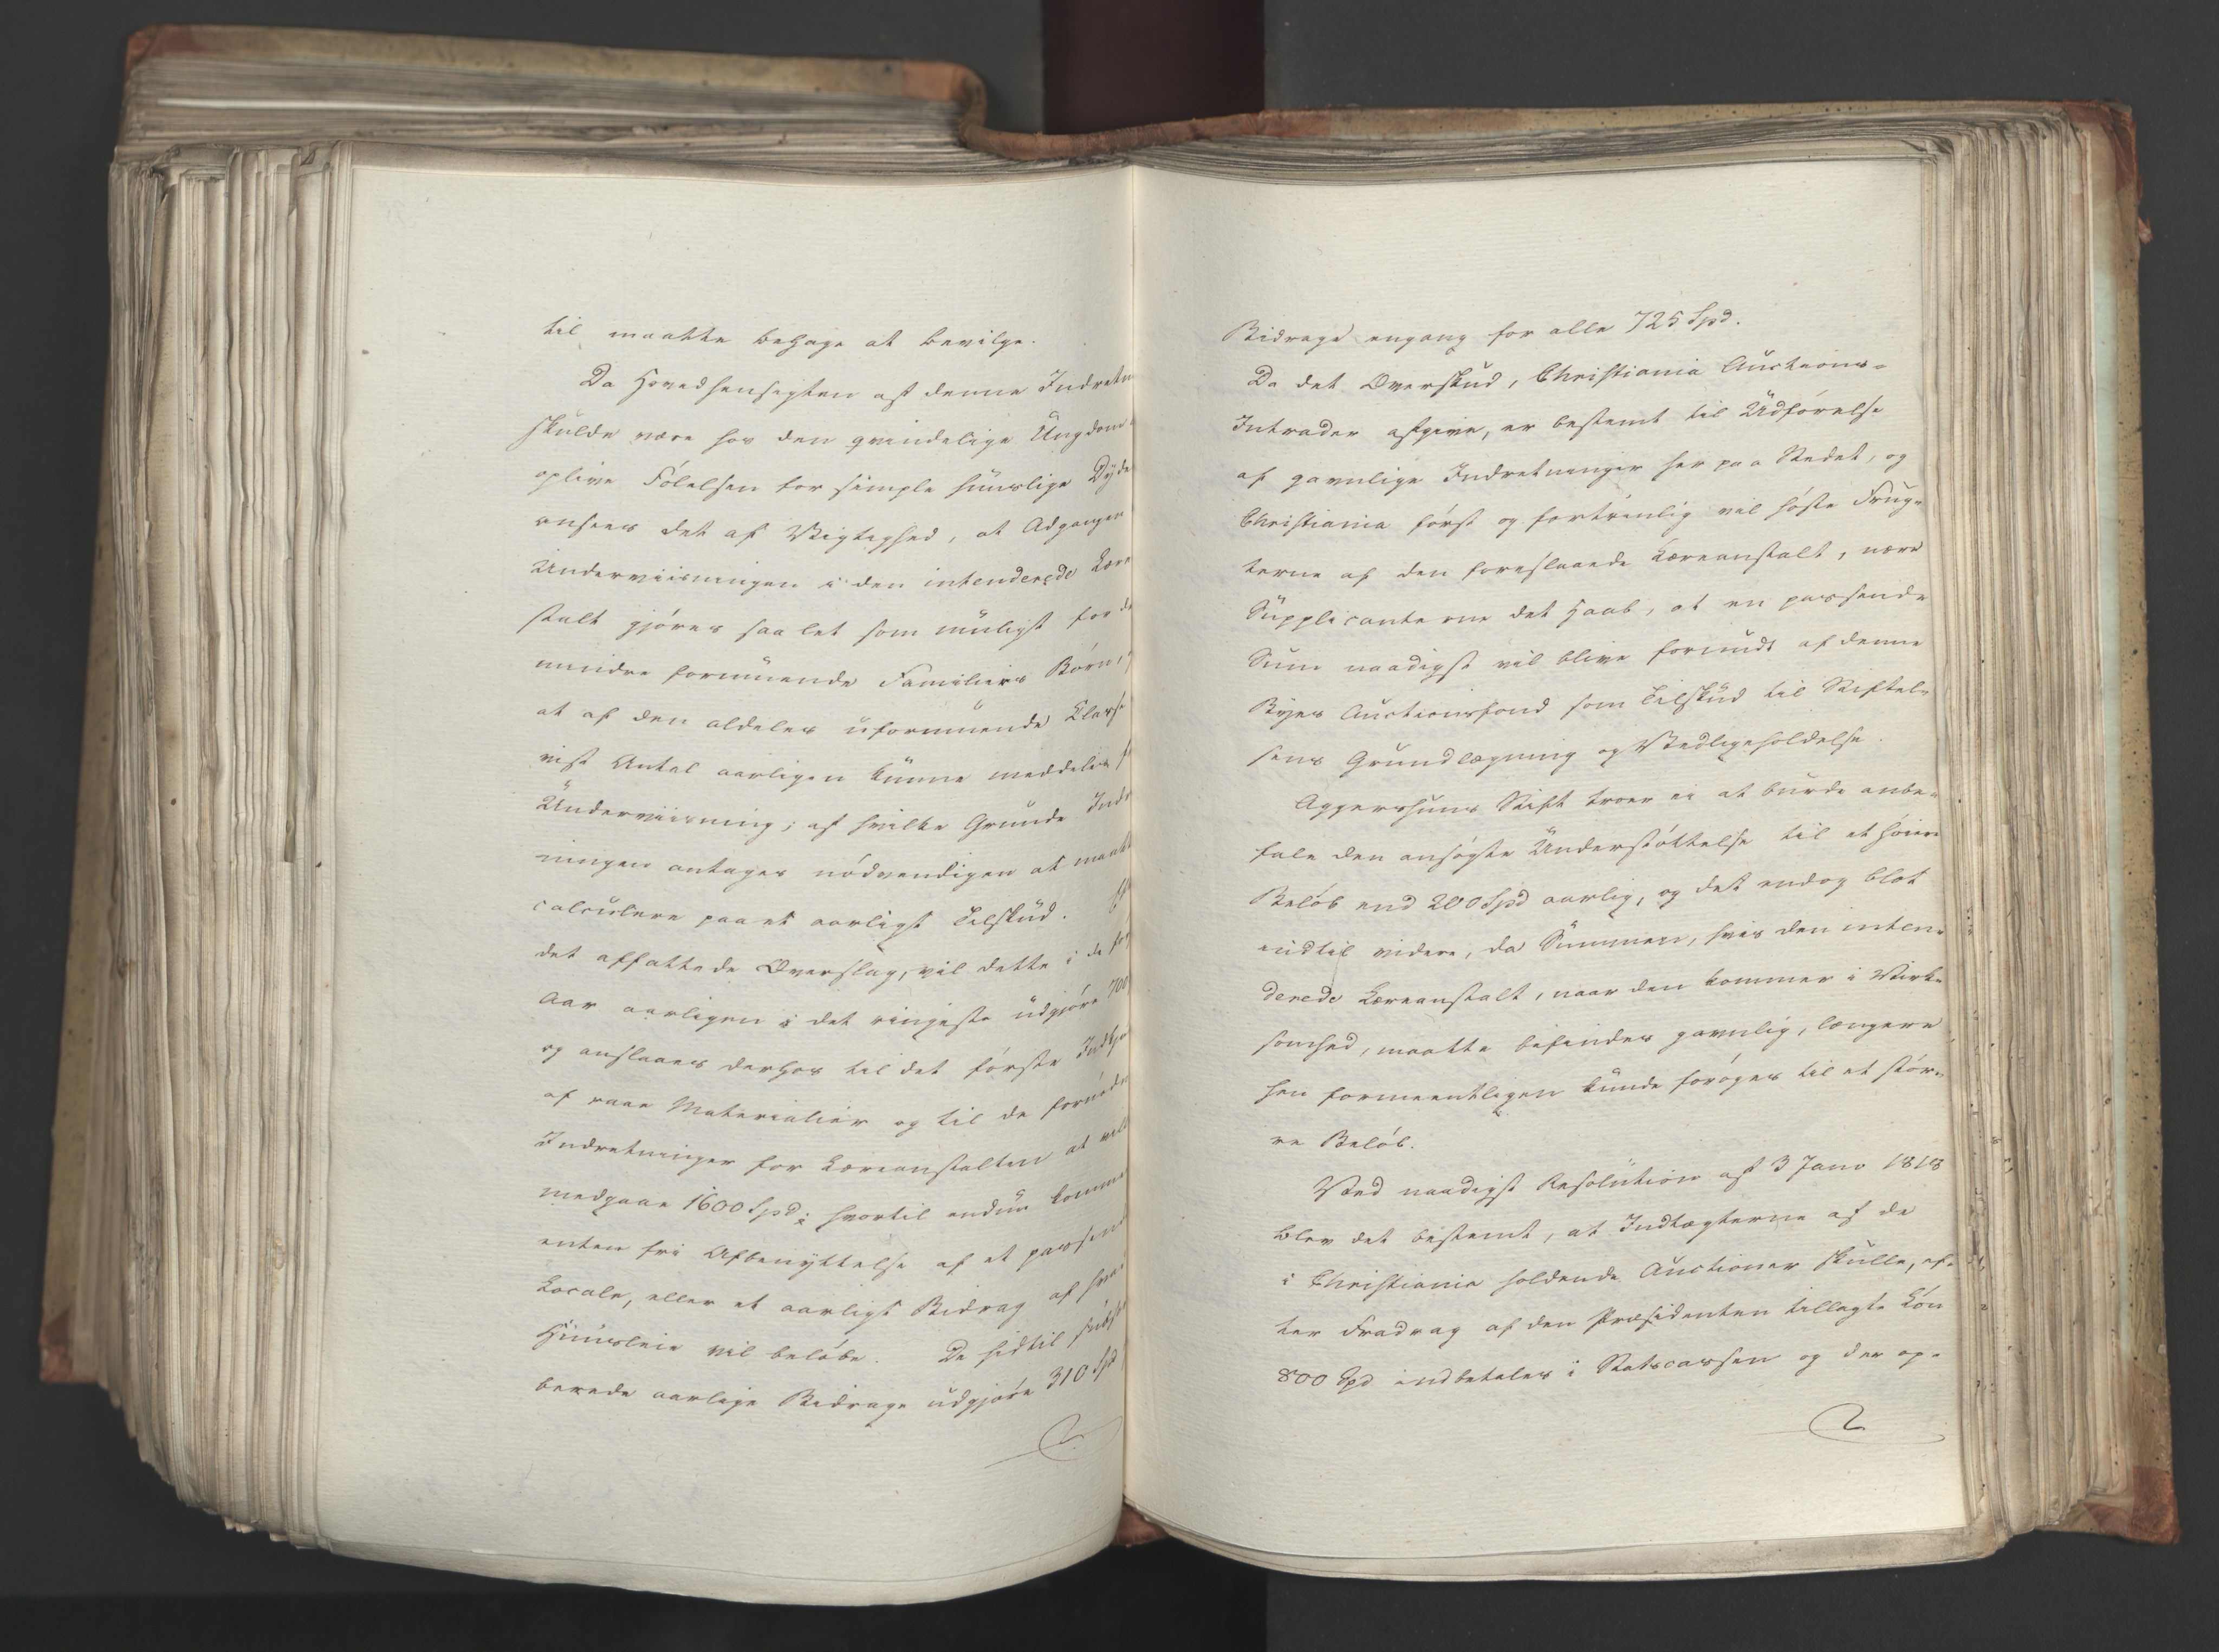 til maatte behage at bevilge.
Da Hovedhensigten af denne Indretn
skulde være hos den qvindelige Ungdom
oplive Følelsen for simple huuslige Dyde
ansees det af Vigtighed, at Adgangen
Underviisningen i den intenderede Lære
stalt gjøres saa let som muligt for de
mindre formuende Familiers Børn,
at af den aldeles uformuende Classe
vist Antal aarligen kunne meddeles
Underviisning; af hvilke Grunde Indr
ningen antages nødvendigen at maatte
calculere paa et aarligt Tilskud.
det affattede Overslag, vil dette i de
Aar aarligen i det ringeste udgjøre 700
og anslaaes derhos til det første Indkjø
af raae Materialier og til de fornødne
Indretninger for Læreanstalten at ville
medgaae 1600 Spd; hvortil endnu komme
enten fri Afbenyttelse af et passend
Locale, eller et aarligt Bidrag af hvad
Huusleie vil beløbe. De hidtil subscri
berede aarlige Bidrage udgjøre 310 Spd
Bidrage engang for alle 725 Spd.
Da det Overskud, Christiania Auctions-
Intrader afgive, er bestemt til Udførelse
af gavnlige Indretninger her paa Stedet, og
Christiania først og fortrinlig vil høste Frug-
terne af den foreslaaede Læreanstalt, nære
Supplicanterne det Haab, at en passende
Sum naadigst vil blive forundt af denne
Byes Auctionsfond som Tilskud til Stiftel-
sens Grundlægning og Vedligeholdelse.
Aggershuus Stift troer ei at burde anbe-
fale den ansøgte Understøttelse til et høiere
Beløb end 200 Spd aarlig, og det endog blot
indtil videre, da Summen, hvis den inten-
derede Læreanstalt, naar den kommer i Virk-
somhed, maatte befindes gavnlig, længere
hen formeentligen kunde forøges til et stør-
re Beløb.
Ved naadigst Resolution af 3 Janv 1818
blev det bestemt, at Indtægterne af de
i Christiania holdende Auctioner skulle, ef-
ter Fradrag af den Præsidenten tillagte Løn
800 Spd indbetales i Statscassen og der op-